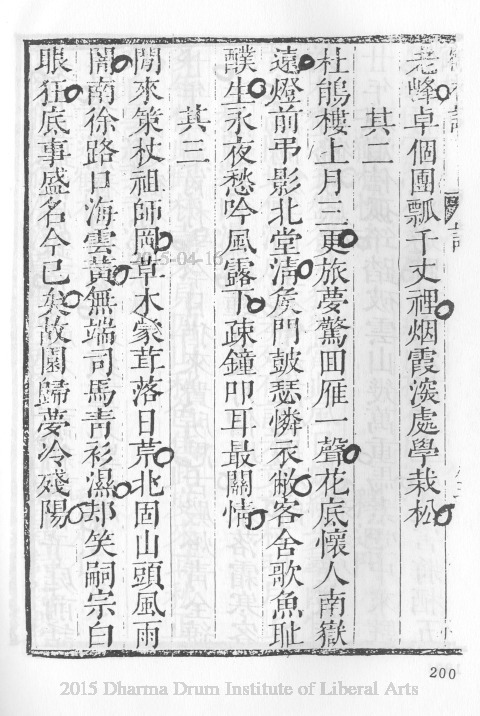 老峰卓個團瓢千丈裡烟霞深處學栽松
其二
杜鵑樓上月三更旅夢驚回雁一聲花底懷人南嶽
遠燈前弔影北堂清侯門鼓瑟憐衣敝客舍歌魚耻
醭生永夜愁吟風露下疎鐘叩耳最關情
其三
閒來策杖祖師岡草木蒙茸落日荒北固山頭風雨
闇南徐路口海雲黃無端司馬青衫濕却笑嗣宗白
眼狂底事盛名今已矣故園歸夢冷殘陽
200
2015 Dharma Drum Institute of Liberal Arts